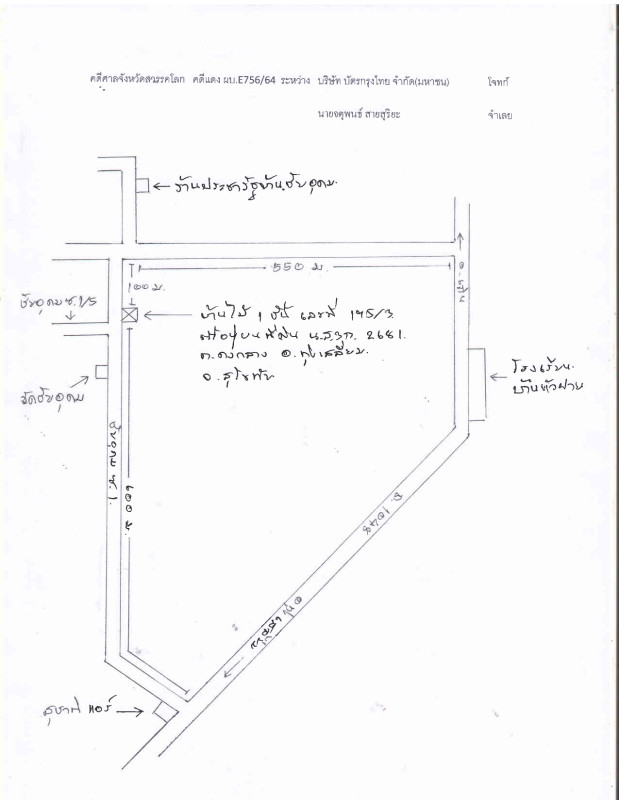 คดีศาลจังหวัดสวรรคโลก คดีแดง ผบ.E756/64 ระหว่าง บริษัท บัตรกรุงไทย จำกัด(มหาชน) โจทก์
นายจตุพนธ์ สายสุริยะ จำเลย
ร้านประชารัฐบ้านชัยอุดม
550 ม.
100 ม.
อ.เถิน
ชัยอุดม ซ.1/5
บ้านไม้ 1 ชั้น เลขที่ 195/3
ตั้งอยู่บนที่ดิน น.ส.3ก. 2681
ต.กลาง อ.ทุ่งเสลี่ยม
จ.สุโขทัย
โรงเรียน
บ้านหัวฝาย
วัดชัยอุดม
ชัยอุดม ซ.1
600 ม.
ถ. 1048
อ.ทุ่งเสลี่ยม
สุชาติ แอร์